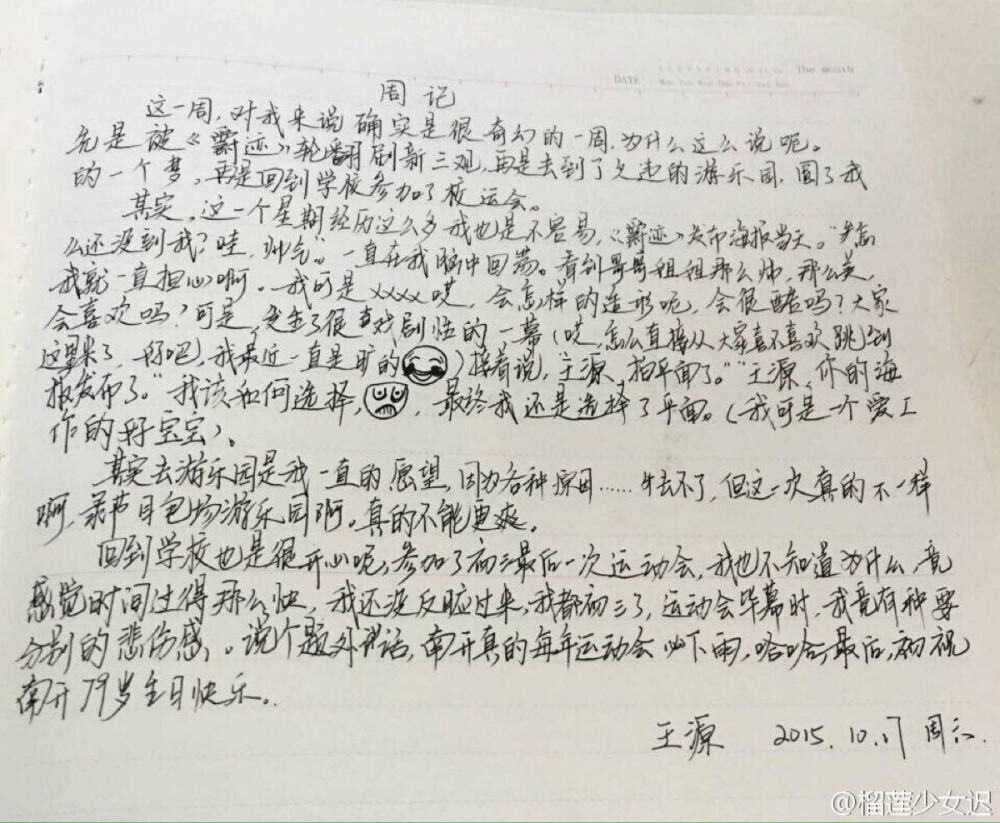 DATE
The month
周记
这一周,对我来说确实是很奇幻的一周,为什么这么说呢。
先是被《爵迹》轮翻刷新三观,再是去到了久违的游乐园,圆了我
的一个梦,再是回到学校参加了校运会。
其实,这一个星期经历这么多我也是不容易,《爵迹》发布海报当天。“怎
么还没到我?哇,帅气。”一直在我脑中回荡。看到哥哥姐姐那么帅,那么美,
我就一直担心啊。我可是xxxx哎,会怎样的造形呢,会很酷吗?大家
会喜欢吗?可是,发生了很喜戏剧性的一幕(哎,怎么直接从大家喜不喜欢跳到
这里来了,好吧),我最近一直是旷的)接着说,王源,拍平面了。”“王源,你的海
报发布了。”我该如何选择,最终我还是选择了平面。(我可是一个爱工
作的好宝宝)。
其实去游乐园是我一直的愿望,因为各种原因……去不了,但这一次真的不一样
啊,录节目包场游乐园啊。真的不能更爽。
回到学校也是很开心呢,参加了初三最后一次运动会,我也不知道为什么,竟
感觉时间过得那么快,我还没反应过来,我都初三了,运动会毕幕时,我竟有种要
分别的悲伤感,。说个题外话,南开真的每年运动会必下雨,哈哈,最后,祝
南开79岁生日快乐。
王源 2015.10.17 周六.
@榴莲少女迟